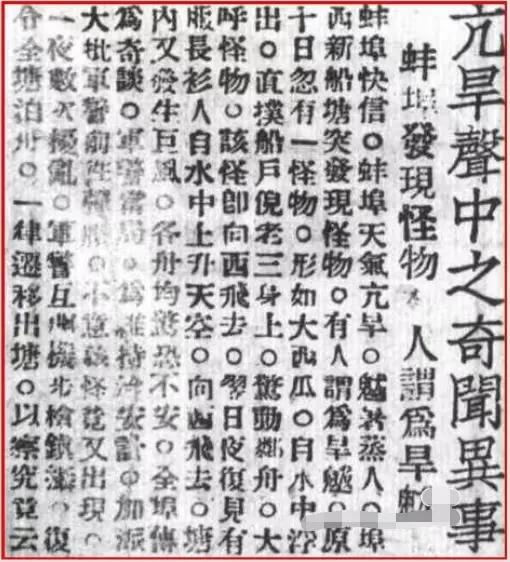 亢旱聲中之奇聞異事
蚌埠發現怪物 人謂爲旱魃
蚌埠快信。蚌埠天氣亢旱。蒸人。埠
西新船塘突發現怪物。有人謂爲旱魃。原
十日忽有一怪物。形如大西瓜。自水中浮
出。直撲船戶倪老三身上。驚動鄰舟。大
呼怪物。該怪卽向西飛去。翌日夜復見有
服長衫人自水中上升天空。向西飛去。塘
內又發生巨風。各舟均驚恐不安。全埠傳
爲奇談。軍警當局。爲維持治安計。加派
大批軍警前往彈壓。不意該怪竟又出現。
一夜數次擾亂。軍警互開機步槍鎮懾。復
令全塘泊舟。一律遷移出塘。以察究竟云